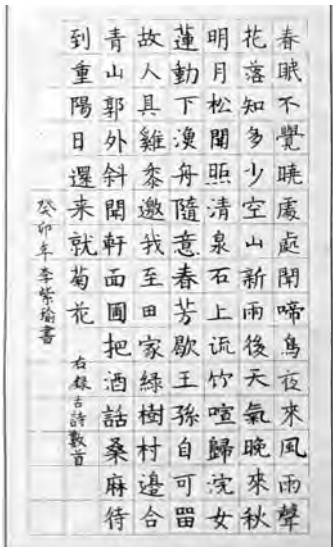 春眠不覺曉處處聞啼鳥夜來風雨聲
花落知多少空山新雨後天氣晚來秋
明月松間照清泉石上流竹喧歸浣女
蓮動下漁舟隨意春芳歇王孫自可留
故人具雞黍邀我至田家綠樹村邊合
青山郭外斜開軒面圃把酒話桑麻待
到重陽日還来就菊花
右錄古詩數首
癸卯年李紫瑜書